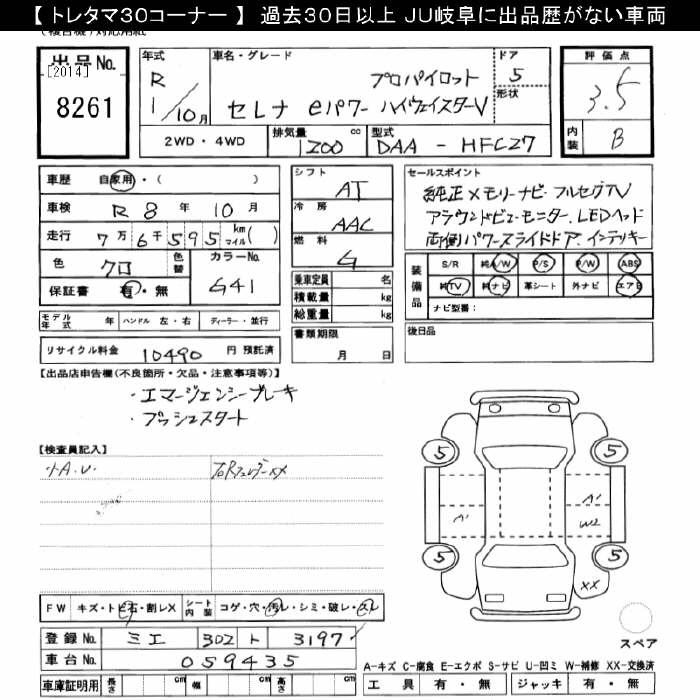 【 トレタマ30コーナー 】 過去30日以上 JU岐阜に出品歴がない車両
出品No. [2014] 8261
年式 R 1/10月
車名・グレード プロパイロット
セレナ eパワー ハイウェイスターV
ドア 5 形状
評価点 3.5
内装 B
2WD・4WD 排気量 1200 cc 型式 DAA - HFC27
車歴 自家用・( )
車検 R 8 年 10 月
走行 7万 6千 5 9 5 km マイル( )
色 クロ 色替 カラーNo. G41
保証書 有・無
モデル年式 年 ハンドル 左・右 ディーラー・並行
リサイクル料金 10490 円 預託済
シフト AT
冷房 AAC
燃料 G
乗車定員 名
積載量 kg
総重量 kg
書類期限 月 日
セールスポイント
純正メモリーナビ・フルセグTV
アラウンドビューモニター・LEDヘッド
両側パワースライドドア、インテッキー
装備品 S/R 純A/W P/S P/W ABS
純TV 純ナビ 革シート 外ナビ エアB
ナビ型番：
後日品
【出品店申告欄(不良箇所・欠品・注意事項等)】
・エマージェンシーブレーキ
・プッシュスタート
【検査員記入】
小A.U. 右Rフェンダーxx
5 5
A1 A1 W2
5 5
XX
FW キズ・トビ石・割レX シート内装 コゲ・穴・汚レ・シミ・破レ・スレ
登録No. ミエ 302 ト 3197
車台No. 059435
車庫証明用 長さ cm 幅 cm 高さ cm
スペア
A-キズ C-腐食 E-エクボ S-サビ U-凹ミ W-補修 XX-交換済
工具 有・無 ジャッキ 有・無